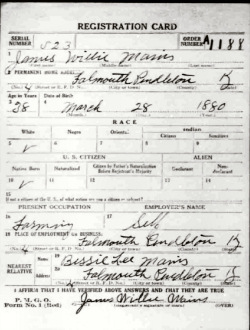 REGISTRATION CARD
SERIAL NUMBER 523 ORDER NUMBER A1188
James Willie Mains
(First name) (Middle name) (Last name)
2 PERMANENT HOME ADDRESS:
Falmouth Pendleton K
(No.) (Street or R. F. D. No.) (City or town) (County) (State)
Age in Years Date of Birth
38 March 28 1880
(Month) (Day) (Year)
RACE
White Negro Oriental Indian
Citizen Noncitizen
5 6 7 8 9
U. S. CITIZEN ALIEN
Native Born Naturalized Citizen by Father's Naturalization Before Registrant's Majority Declarant Non-declarant
10 11 12 13 14
15 If not a citizen of the U. S., of what nation are you a citizen or subject?
PRESENT OCCUPATION EMPLOYER'S NAME
Farming Self
PLACE OF EMPLOYMENT OR BUSINESS:
Falmouth Pendleton K
(No.) (Street or R. F. D. No.) (City or town) (County) (State)
NEAREST RELATIVE Name Bessie Lee Mains
Address Falmouth Pendleton K
(No.) (Street or R. F. D. No.) (City or town) (County) (State)
I AFFIRM THAT I HAVE VERIFIED ABOVE ANSWERS AND THAT THEY ARE TRUE
P. M. G. O.
Form No. 1 (Red) James Willie Mains
(OVER)